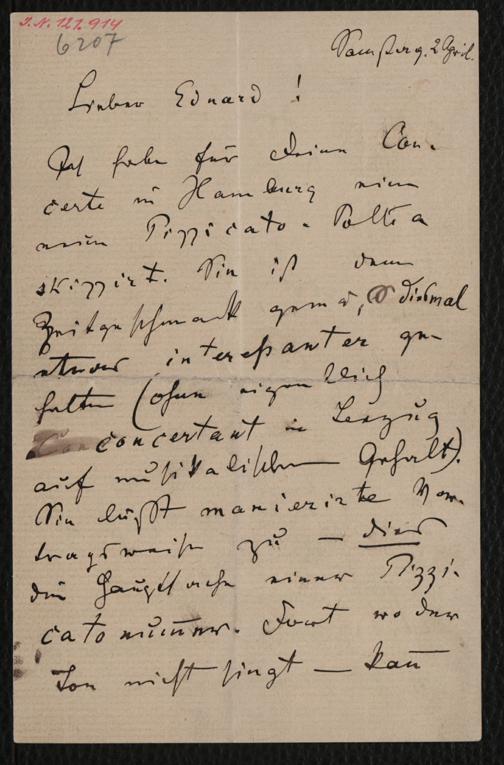 J.N. 121.914
6207
Samstag. 2 April.
Lieber Eduard !
Ich habe für deine Con-
certe in Hamburg eine
neue Pizzicato-Polka
skizzirt. Sie ist dem
Zeitgeschmack gemäß, diesmal
etwas interessanter ge-
halten (ohne eigentlich
concertant in Bezug
auf musikalischen Gehalt).
Sie läßt manierirte Vor-
tragsweise zu — dies
die Hauptsache einer Pizzi-
catonummer. Dort wo der
Ton nicht singt — kañ